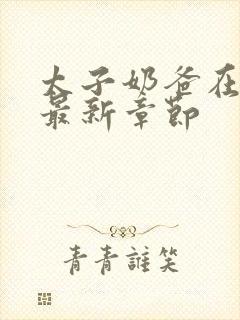 太子奶爸在
最新章節
青青誰笑